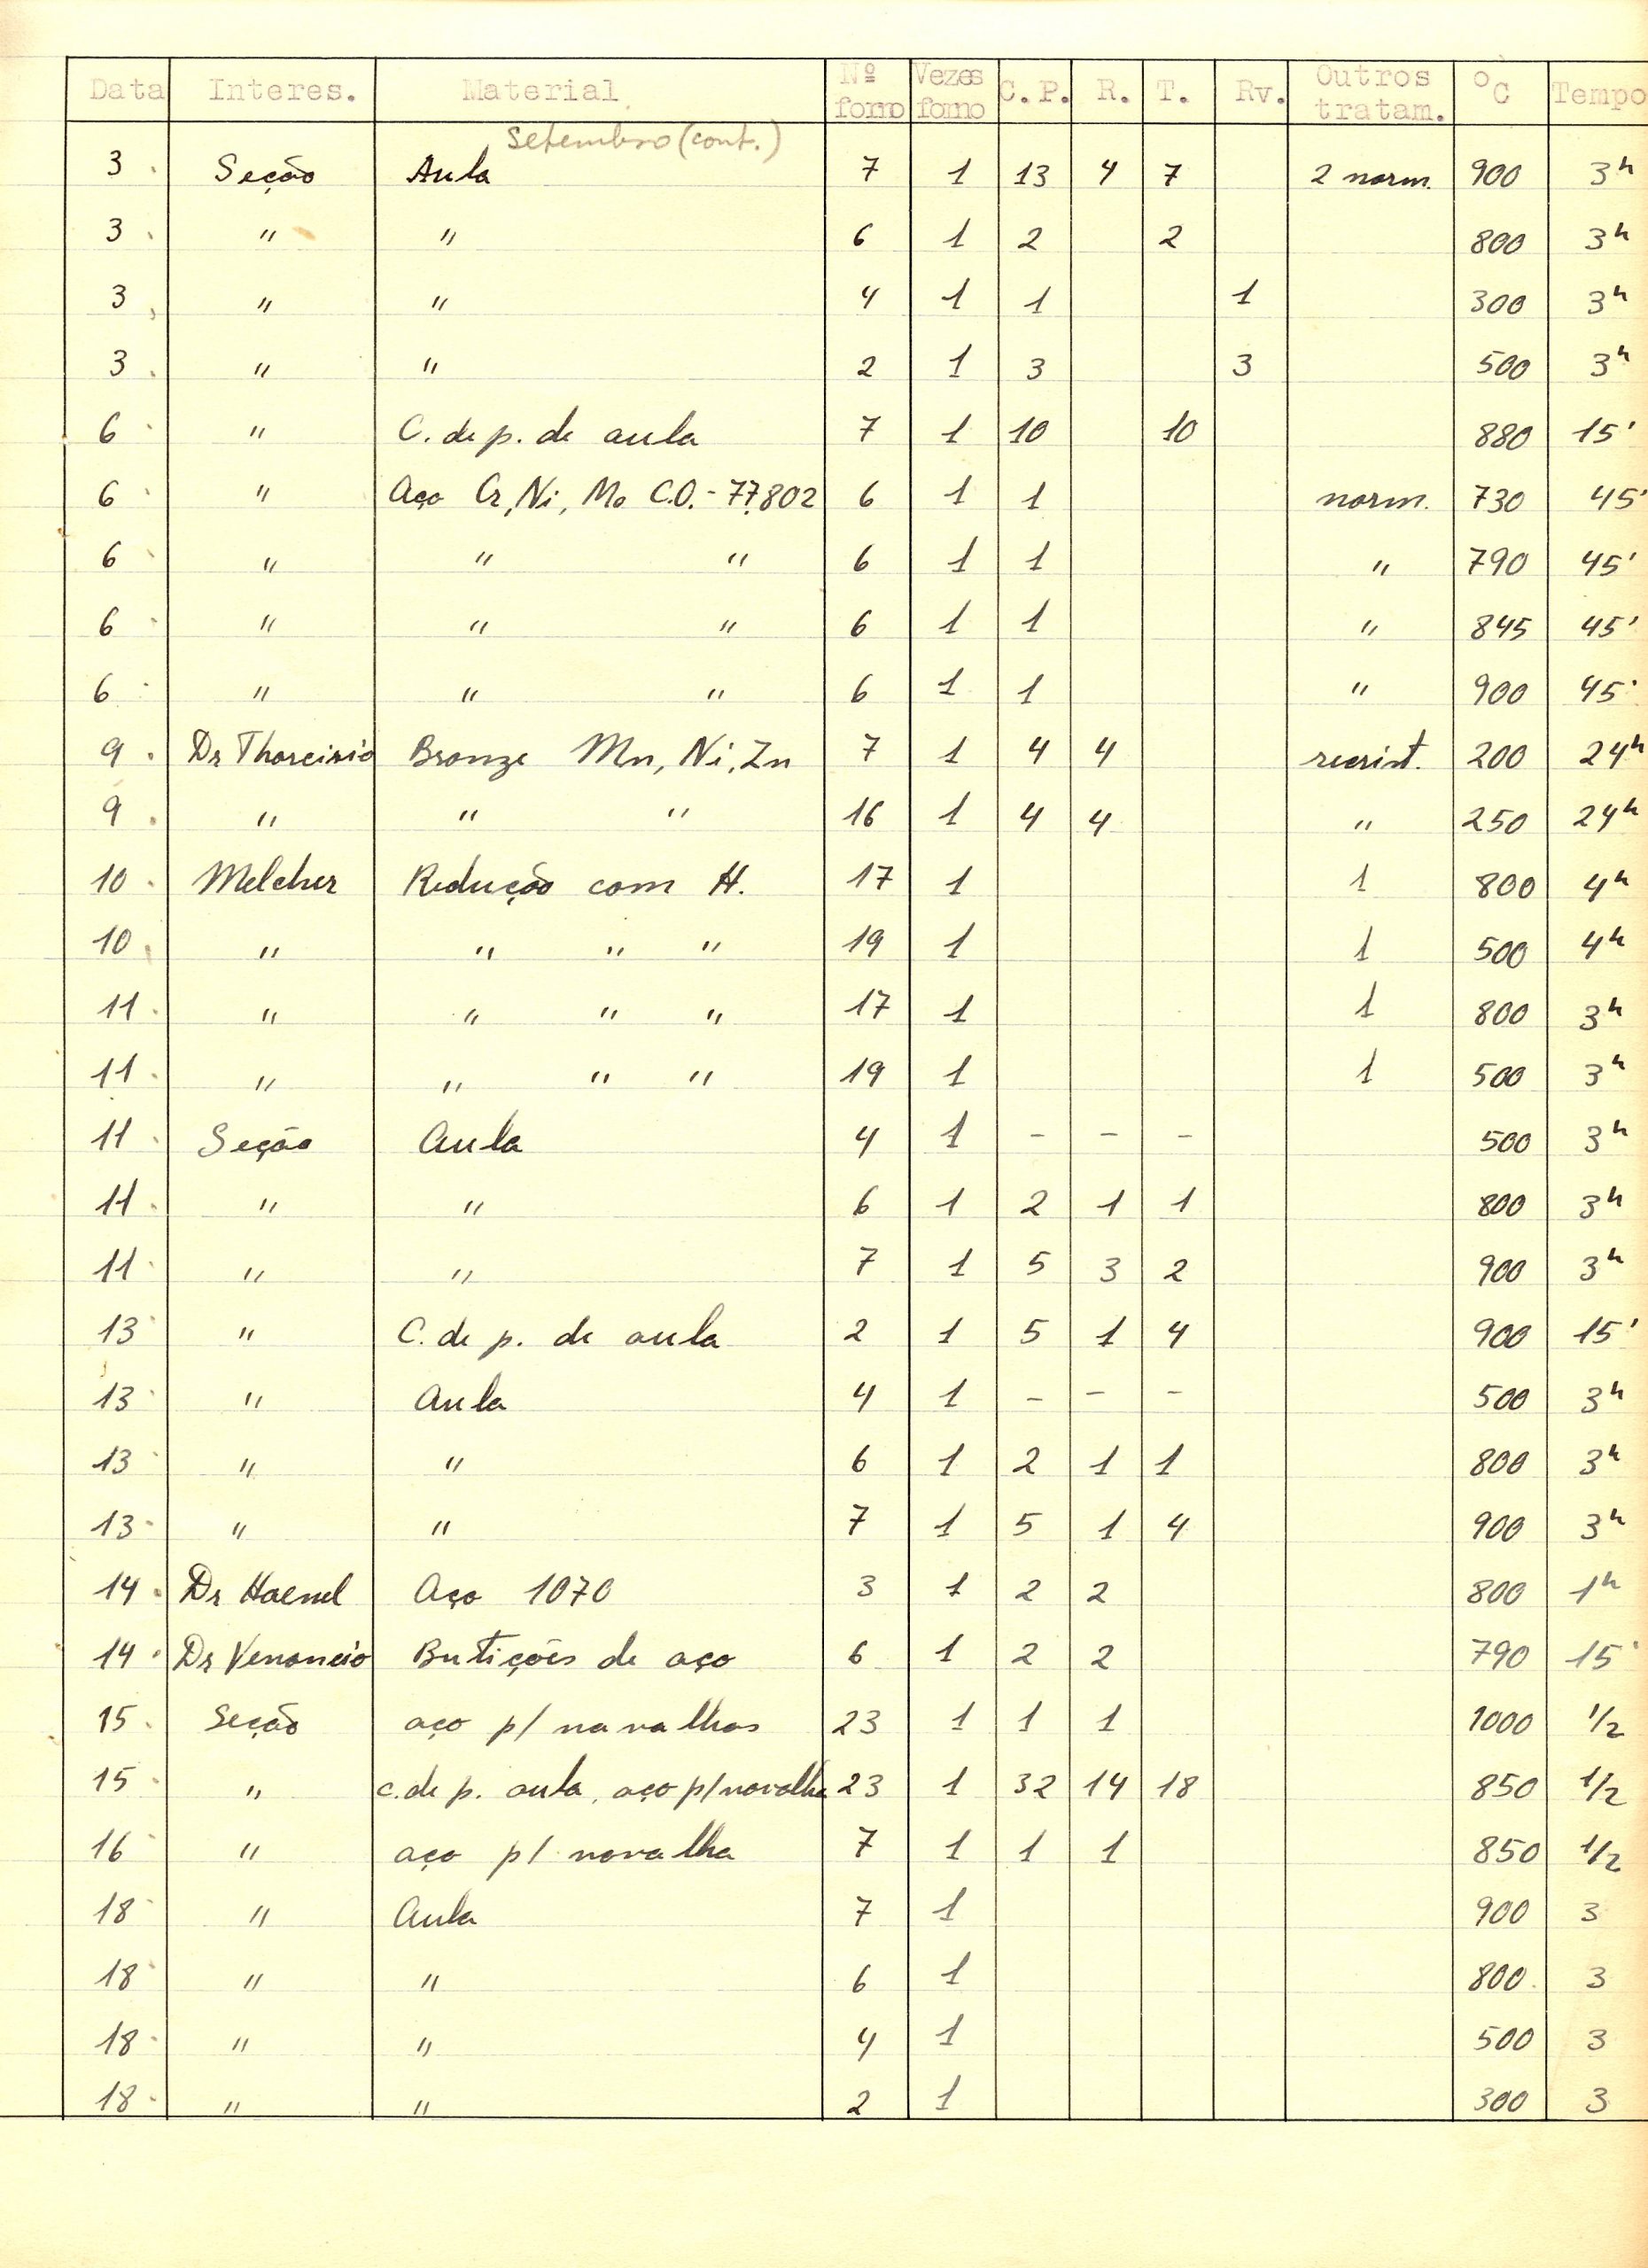 Data Interes. Material Nº forno Vezes forno C.P. R. T. Rv. Outros tratam. ºC Tempo
Setembro (cont.)
3 Seção Aula 7 1 13 4 7 2 norm. 900 3h
3 " " 6 1 2 2 800 3h
3 " " 4 1 1 1 300 3h
3 " " 2 1 3 3 500 3h
6 " C. de p. de aula 7 1 10 10 880 15'
6 " Aço Cr, Ni, Mo C.O.- 77.802 6 1 1 norm. 730 45'
6 " " " 6 1 1 " 790 45'
6 " " " 6 1 1 " 845 45'
6 " " " 6 1 1 " 900 45'
9 Dr Bronze Mn, Ni, Zn 7 1 4 4 recrist. 200 24h
9 " " " 16 1 4 4 " 250 24h
10 Melcher Redução com H. 17 1 1 800 4h
10 " " " " 19 1 1 500 4h
11 " " " " 17 1 1 800 3h
11 " " " " 19 1 1 500 3h
11 Seção Aula 4 1 - - - 500 3h
11 " " 6 1 2 1 1 800 3h
11 " " 7 1 5 3 2 900 3h
13 " C. de p. de aula 2 1 5 1 4 900 15'
13 " Aula 4 1 - - - 500 3h
13 " " 6 1 2 1 1 800 3h
13 " " 7 1 5 1 4 900 3h
14 Dr Haenel Aço 1070 3 1 2 2 800 1h
14 Dr Venancio de aço 6 1 2 2 790 15'
15 Seção aço p/ navalhas 23 1 1 1 1000 1/2
15 " c. de p. aula, aço p/ navalha 23 1 32 14 18 850 1/2
16 " aço p/ navalha 7 1 1 1 850 1/2
18 " Aula 7 1 900 3
18 " " 6 1 800 3
18 " " 4 1 500 3
18 " " 2 1 300 3